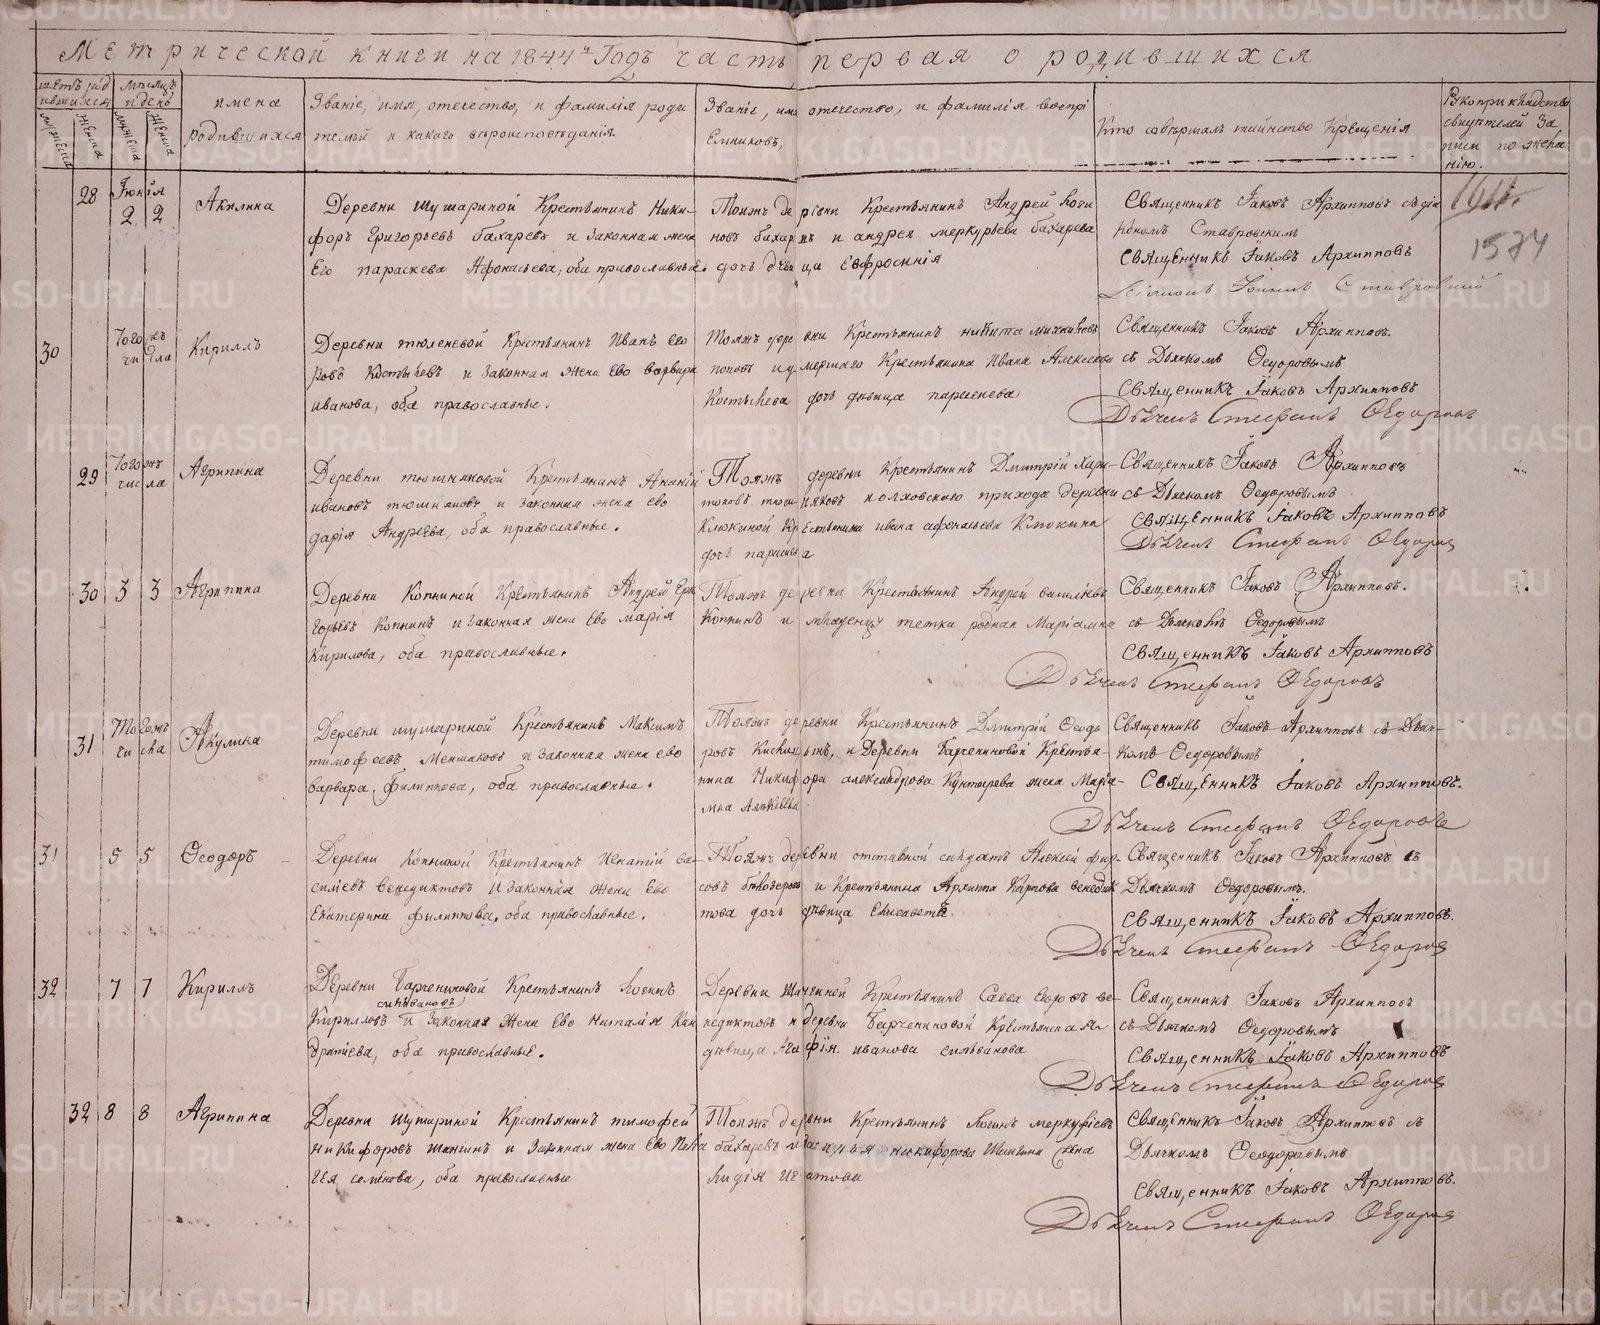 Метрической книги на 1844й Годъ часть первая о родившихся
Мѣсяцъ и день
имена родившихся
Званіе, имя, отечество, и фамилія роди
телей и какого вѣроисповѣданія.
Званіе, имя отечество, и фамилія воспрі
Емниковъ,
Кто совѣршалъ таинство Крещенія
Рукоприкладство
свидѣтелей за
писи по жела
нію.
28 Іюнія 2 2 Акилина
Деревни Шушариной Крестьянинъ Ники-
форъ Григорьевъ бахаревъ и Законная жена
Его параскева Афонасьева, оба православные.
Тояжъ деревни Крестьянинъ Андрей Логи
новъ бахаревъ и андрея меркурьева бахарева
дочь дѣвица Евфросинія
Священникъ Іаковъ Архипповъ съ діа
кономъ Ставровскимъ
Священникъ Іаковъ Архипповъ
Діаконъ Іоаннъ Ставровскій
1574
30 Того жъ числа Кириллъ
Деревни тюленевой Крестьянинъ Иванъ Его
ровъ Костылевъ и Законная Жена Ево варвара
иванова, оба православные.
Тояжъ деревни Крестьянинъ никита
поповъ и умершаго Крестьянина Ивана Алексеева
Костылева дочь дѣвица
Священникъ Іаковъ Архипповъ.
съ Дьячкомъ Ѳедоровымъ
Священникъ Іаковъ Архипповъ
Дьячекъ Стефанъ Ѳедоровъ
29 Того жъ числа Агрипина
Деревни Крестьянинъ Ананій
ивановъ и законная жена ево
дарія Андреева, оба православные.
Тояжъ деревни Крестьянинъ Дмитрій Хари-
тоновъ прихода деревни
Клюкиной Крестьянина ивана афонасьева Клюкина
дочь
Священникъ Іаковъ Архипповъ
съ Дьячкомъ Ѳедоровымъ
Священникъ Іаковъ Архипповъ
Дьячекъ Стефанъ Ѳедоровъ
30 3 3 Агрипина
Деревни Копниной Крестьянинъ Андрей Гри
горьевъ Копнинъ и Законная жена Ево марія
Кирилова, оба православные.
Тояжъ деревни Крестьянинъ Андрей василіевъ
Копнинъ и младенцу тетка родная Маріамна
Священникъ Іаковъ Архипповъ.
съ Дьячкомъ Ѳедоровымъ
Священникъ Іаковъ Архипповъ
Дьячекъ Стефанъ Ѳедоровъ
31 Того жъ числа Акулина
Деревни шушариной Крестьянинъ Максимъ
тимофеевъ Меншаковъ и Законная жена ево
варвара филиппова, оба православные.
Тояжъ деревни Крестьянинъ Дмитрій Ѳеодо
ровъ и Деревни Барчениновой Крестья-
нина Никифора александрова жена Маріа-
мна
Священникъ Іаковъ Архипповъ съ Дьяч-
комъ Ѳедоровымъ
Священникъ Іаковъ Архипповъ.
Дьячекъ Стефанъ Ѳедоровъ
31 5 5 Ѳеодоръ
Деревни Копниной Крестьянинъ Игнатій ва-
силіевъ венедиктовъ и Законная жена Ево
Екатерина филиппова, оба православные.
Тояжъ деревни отставной салдатъ Алексей фир-
совъ бѣлозеровъ и Крестьянина Архипа Карпова венедик
това дочь дѣвица Елисаветъ.
Священникъ Іаковъ Архипповъ съ
Дьячкомъ Ѳедоровымъ.
Священникъ Іаковъ Архипповъ.
Дьячекъ Стефанъ Ѳедоровъ
32 7 7 Кириллъ
Деревни Барчениновой Крестьянинъ Логинъ
сильвановъ
Кирилловъ и Законная Жена Ево Наталія Кон
дратіева, оба православные.
Деревни Крестьянинъ Савва Егоровъ ве-
недиктовъ и деревни Барчениновой Крестьянская
дѣвица Агафія иванова сильванова
Священникъ Іаковъ Архипповъ
съ Дьячкомъ Ѳедоровымъ
Священникъ Іаковъ Архипповъ
Дьячекъ Стефанъ Ѳедоровъ
32 8 8 Агрипина
Деревни Шушариной Крестьянинъ тимофей
никифоровъ Шангинъ и Законная жена Ево Пела
гея семенова, оба православные
Тояжъ деревни Крестьянинъ Логинъ меркуріевъ
бахаревъ и никифорова Шангина жена
Лидія Игнатова
Священникъ Іаковъ Архипповъ съ
Дьячкомъ Ѳеодоровымъ
Священникъ Іаковъ Архипповъ.
Дьячекъ Стефанъ Ѳедоровъ